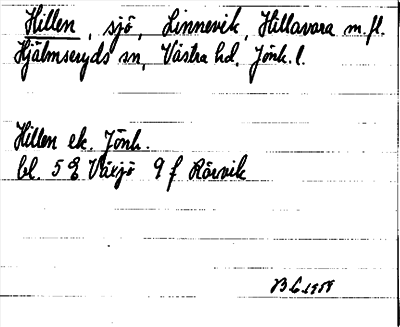 Hillen, sjö, Linnevik, Hillavara m.fl.
Hjälmseryds sn, Västra hd, Jönk. l.
Hillen ek. Jönk.
bl. 5 E Växjö 9 f Rörvik
1959